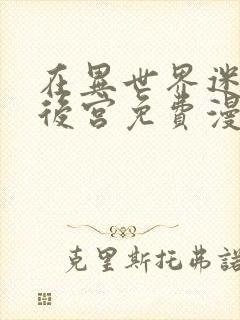 在異世界迷
後宮免費漫
克里斯托弗諾